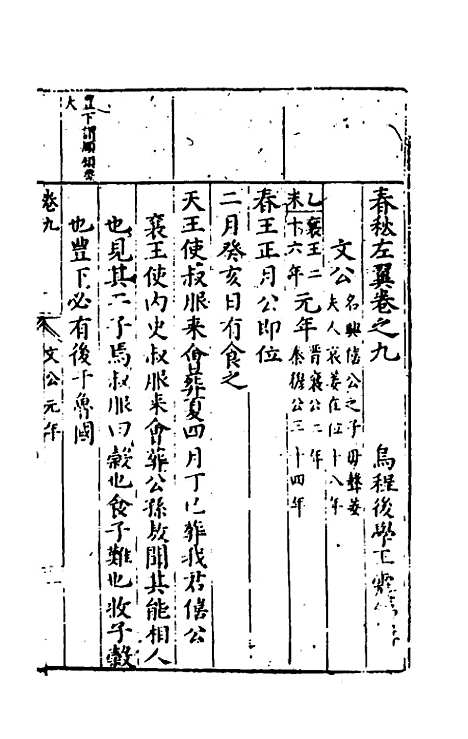 春秋左翼卷之九
烏程後學王
文公名興僖公之子母聲姜
夫人哀姜在位十八年
乙未襄王二十六年元年晉襄公二年
秦穆公三十四年
春王正月公即位
二月癸亥日有食之
天王使叔服來會葬夏四月丁巳葬我君僖公
襄王使內史叔服來會葬公孫敖聞其能相人
也見其二子焉叔服曰穀也食子難也收子穀
也豊下必有後于魯國
豊下謂頤頷
大
卷九
文公元年